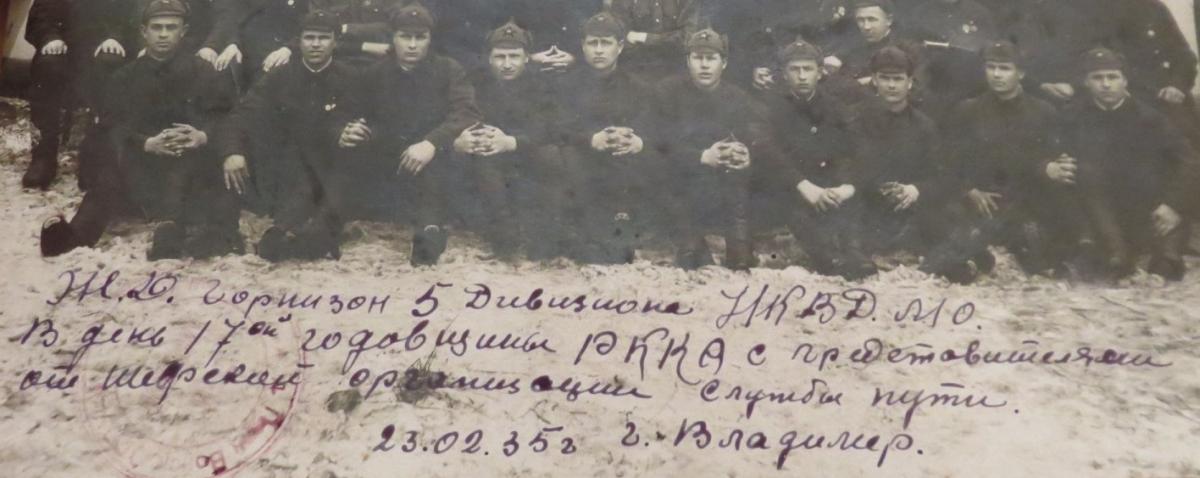 Ж.Д. горнизон 5 Дивизиона НКВД. МО.
В день 17ой годовщины РККА с представителями
от шефской организации службы пути.
23.02.35г г. Владимир.